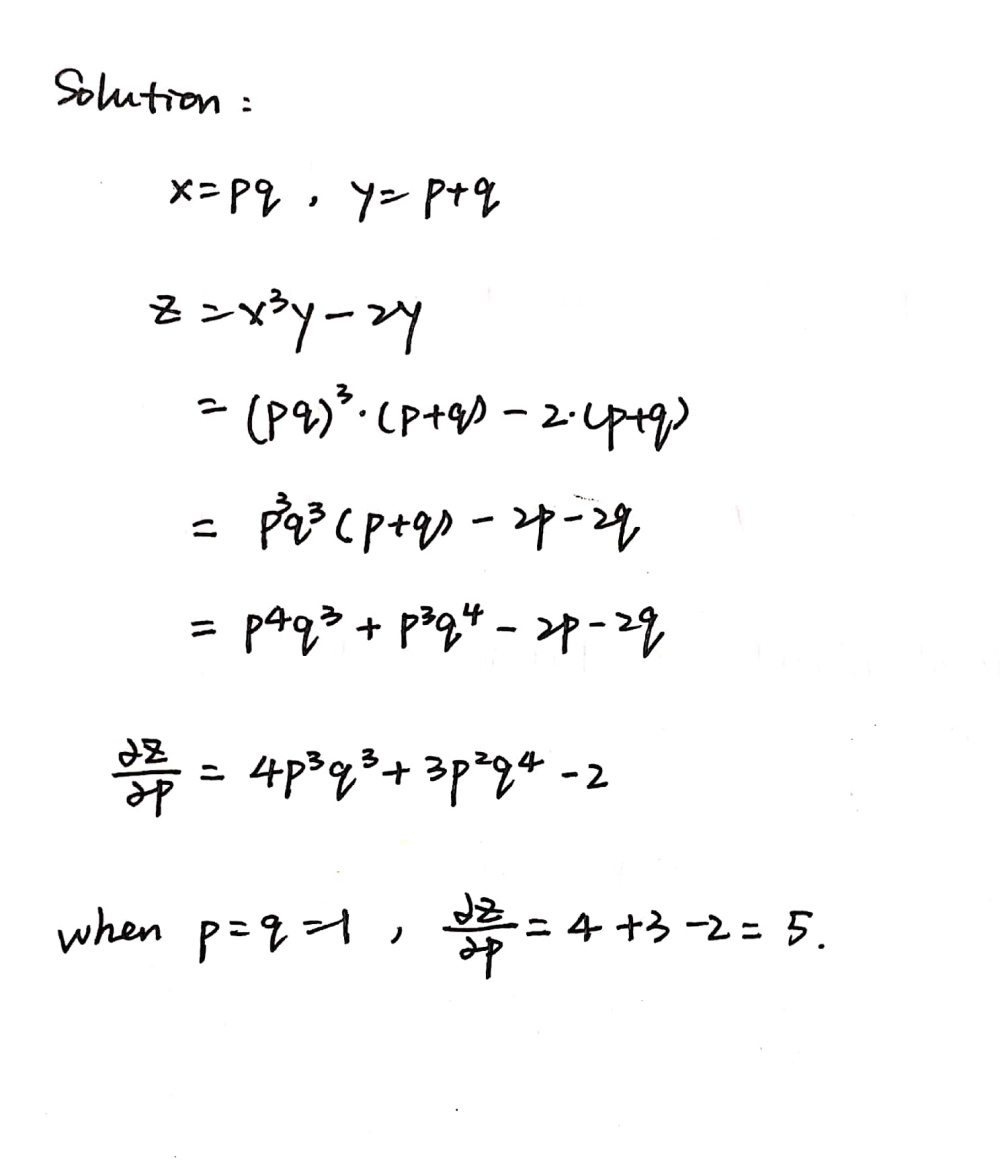 Solution :
x=pq , y=p+q
z=x³y-2y
=(pq)³·(p+q)-2·(p+q)
= p³q³(p+q)-2p-2q
= p⁴q³+p³q⁴-2p-2q
∂z/∂p = 4p³q³+3p²q⁴-2
when p=q=1 , ∂z/∂p = 4+3-2=5.